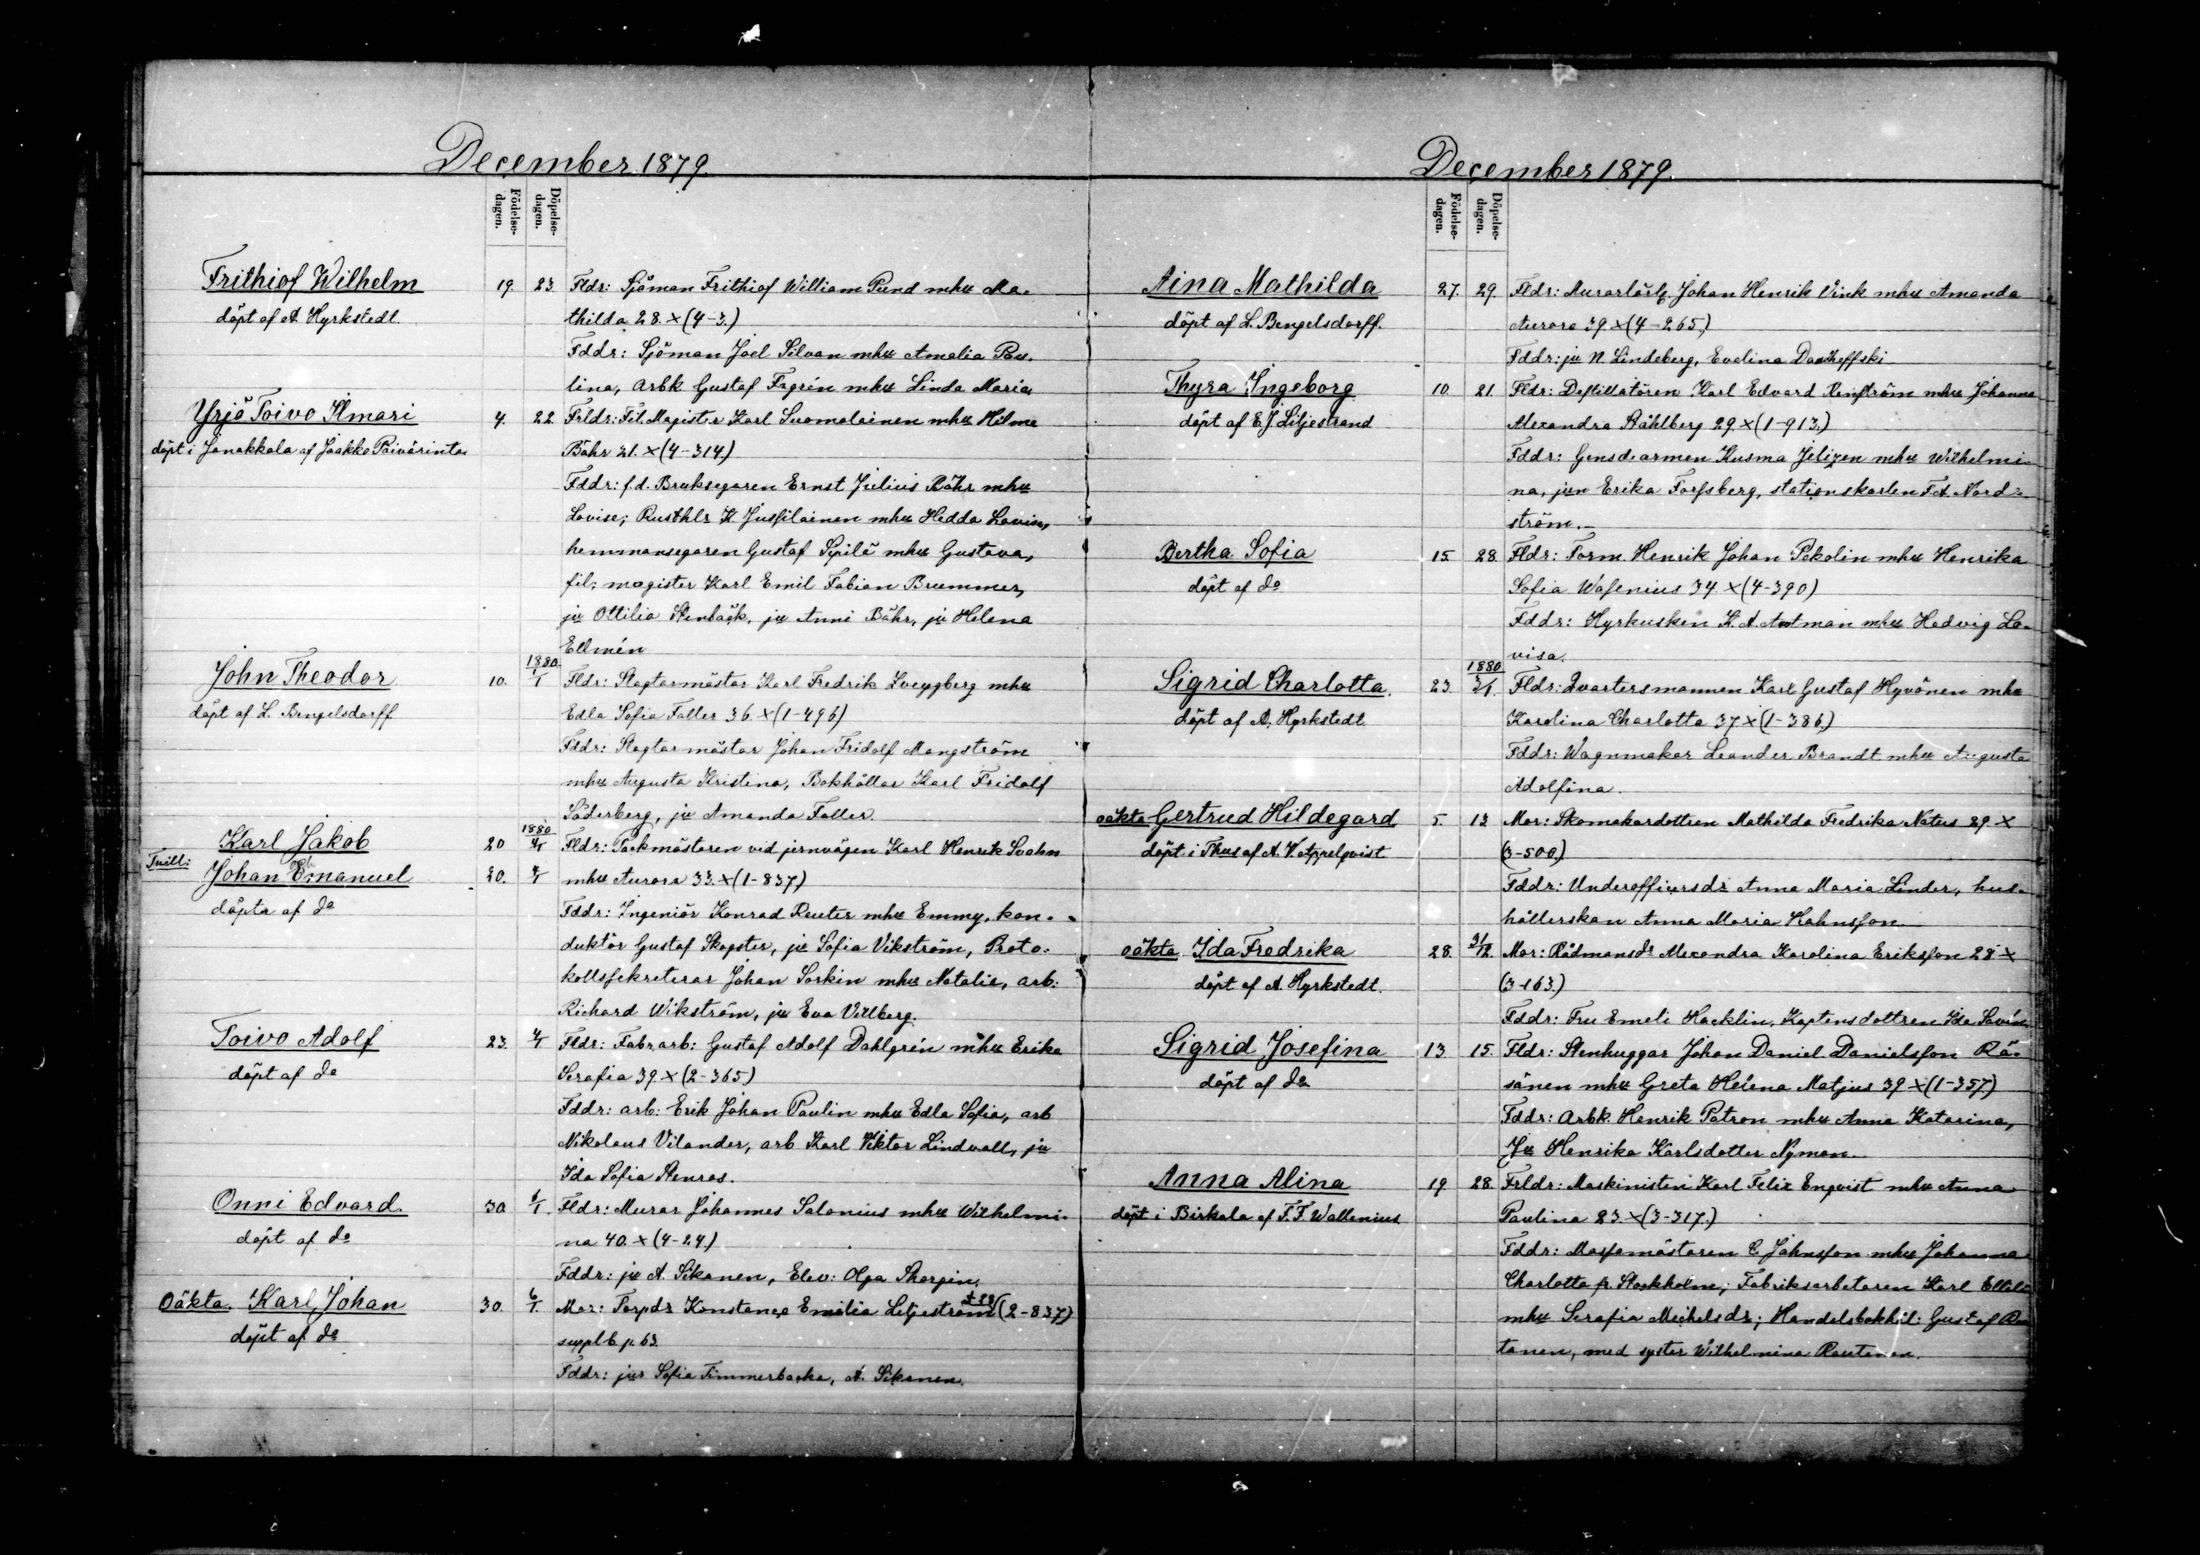 December 1879.
Födelse-
dagen.
Döpelse-
dagen.
Frithiof Wilhelm
döpt af A. Hyrkstedt.
19. 23. Fldr: Sjöman Frithiof William Pund mhu Ma-
thilda 28. × (4-3.)
Fddr: Sjöman Joel Silvan mhu Amalia Pau-
lina, arbk Gustaf Fagrén mhu Linda Maria
Yrjö Toivo Ilmari
döpt i Janakkala af Jaakko Päivärinta
4. 22. Frldr: Fil. Magister Karl Suomalainen mhu Hilma
Bähr 21. × (4-314.)
Fddr: f.d. Bruksegaren Ernst Julius Bähr mhu
Lovise; Rusthlr K Jussilainen mhu Hedda Lovisa,
hemmansegaren Gustaf Sipilä mhu Gustava,
fil: magister Karl Emil Fabian Brummer,
ju Ottilia Stenbäck, ju Anni Bähr, ju Helena
Ellmén
John Theodor
döpt af L. Bengelsdorff
10. 1880. 1/1 Fldr: Slagtarmästar Karl Fredrik Sveygberg mhu
Edla Sofia Faller 36. × (1-496)
Fddr: Slagtarmästar Johan Fridolf Mangström
mhu Augusta Kristina, Bokhållar Karl Fridolf
Söderberg, ju Amanda Faller.
Tvill: Karl Jakob
Johan Emanuel
döpta af do
20 1880 4/1 Fldr: Packmästaren vid jernvägen Karl Henrik Svahn
20. 4/1 mhu Aurora 33. × (1-837)
Fddr: Ingeniör Konrad Reuter mhu Emmy, kon-
duktör Gustaf Skogster, ju Sofia Vikström, Proto-
kollssekreterar Johan Sorkin mhu Natalia, arb:
Richard Wikström, ju Eva Villberg.
Toivo Adolf
döpt af do
23. 4/1 Fldr: Fabr. arb: Gustaf Adolf Dahlgrén mhu Erika
Serafia 39. × (2-365)
Fddr: arb: Erik Johan Paulin mhu Edla Sofia, arb
Nikolaus Vilander, arb Karl Viktor Lindvall, ju
Ida Sofia Stenros.
Onni Edvard.
döpt af do
30. 6/1. Fldr: Murar Johannes Salonius mhu Wilhelmi-
na 40. × (4-24.)
Fddr: ju A. Sikanen, Elev: Olga Shorgin.
Oäkta. Karl Johan
döpt af do
30. 6/1. Mor: Torpdr Konstance Emilia Liljeström ± 28 (2-837)
suppl 6 p. 63.
Fddr: jur Sofia Timmerbacka, A. Sikanen.
December 1879.
Födelse-
dagen.
Döpelse-
dagen.
Aina Mathilda
döpt af L. Bengelsdorff.
27. 29. Fldr: Murarlärl. Johan Henrik Vink mhu Amanda
Aurora 39 × (4-265.)
Fddr: ju N. Lindeberg, Evelina
Thyra Ingeborg
döpt af E. J. Liljestrand
10. 21. Fldr: Destillatören Karl Edvard Renström mhu Johanna
Alexandra Ståhlberg 29. × (1-913.)
Fddr: Gensdarmen Kusma Jelizen mhu Wilhelmi-
na, jun Erika Forssberg, stationskarlen F. A. Nord-
ström.
Bertha Sofia
döpt af do
15. 28. Fldr: Form. Henrik Johan Pekolin mhu Henrika
Sofia Wasenius 34 × (4-390)
Fddr: Hyrkusken K. A. Antman mhu Hedvig Lo-
visa.
Sigrid Charlotta.
döpt af A. Hyrkstedt
23. 1880 3/1. Fldr: Qvartersmannen Karl Gustaf Hyvönen mhu
Karolina Charlotta 37 × (1-386)
Fddr: Wagnmakar Leander Brandt mhu Augusta
Adolfina.
oäkta Gertrud Hildegard
döpt i Thus af A. V. Appelqvist
5. 13 Mor: Skomakardottren Mathilda Fredrika Natus 29. ×
(3-500.)
Fddr: Underofficersdr Anna Maria Linder, hus-
hållerskan Anna Maria Hahnsson
oäkta Ida Fredrika
döpt af A. Hyrkstedt.
28. 31/12. Mor: Rådmansdr Alexandra Karolina Eriksson 28 ×
(3-163.)
Fddr: Fru Emeli Hacklin, Kaptensdottren Ida
Sigrid Josefina
döpt af do
13 15. Fldr: Stenhuggar Johan Daniel Danielsson Rä-
sänen mhu Greta Helena Matjus 39 × (1-357.)
Fddr: Arbk. Henrik Patron mhu Anna Katarina,
Ju Henrika Karlsdotter Nyman
Anna Alina
döpt i Birkala af F. F. Wallenius
19 28. Frldr: Maskinisten Karl Felix Enqvist mhu Anna
Paulina 23. × (3-317.)
Fddr: Massamästaren C Johnsson mhu Johanna
Charlotta fr Stockholm; Fabriksarbetaren Karl
mhu Serafia Michelsdr; Handelsbokhål: Gustaf Rau
tanen, med syster Wilhelmina Rautanen.